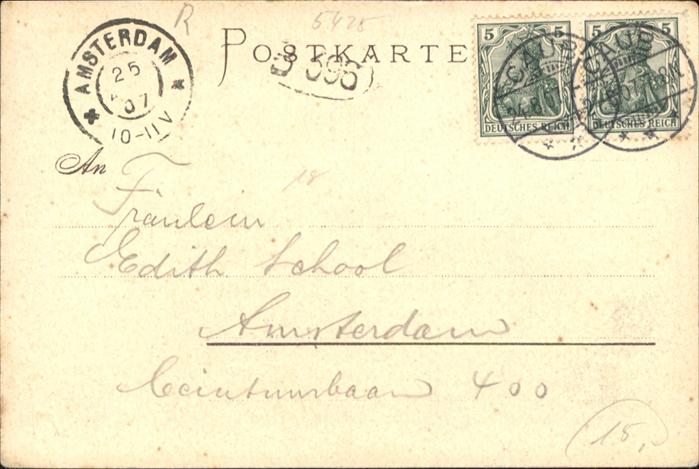 R
5425
AMSTERDAM
25
07
10-11V
POSTKARTE
396
5 5
5 5
DEUTSCHES REICH
DEUTSCHES REICH
CAUB
CAUB
An
18
Fräulein
Edith School
Amsterdam
Ceintuurbaan 400
15,